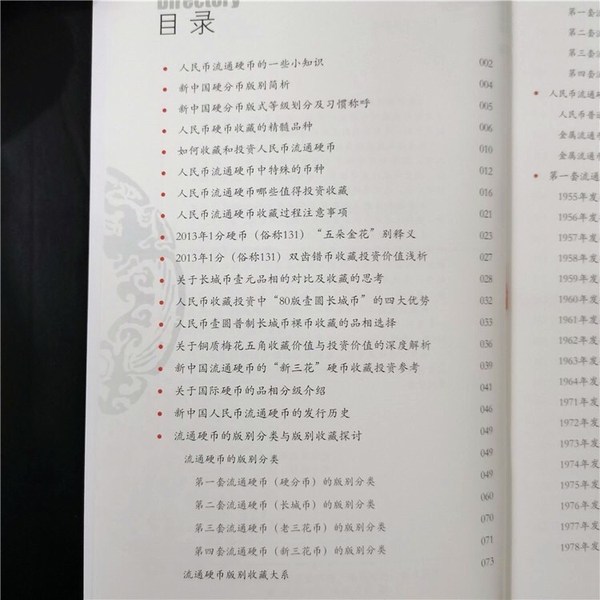 Directory
目录
人民币流通硬币的一些小知识 002
新中国硬分币版别简析 004
新中国硬分币版式等级划分及习惯称呼 005
人民币硬币收藏的精髓品种 006
如何收藏和投资人民币流通硬币 010
人民币流通硬币中特殊的币种 012
人民币流通硬币哪些值得投资收藏 016
人民币流通硬币收藏过程注意事项 021
2013年1分硬币（俗称131）“五朵金花”别释义 023
2013年1分（俗称131）双齿错币收藏投资价值浅析 027
关于长城币壹元品相的对比及收藏的思考 028
人民币收藏投资中“80版壹圆长城币”的四大优势 032
人民币壹圆普制长城币裸币收藏的品相选择 033
关于铜质梅花五角收藏价值与投资价值的深度解析 036
新中国流通硬币的“新三花”硬币收藏投资参考 039
关于国际硬币的品相分级介绍 041
新中国人民币流通硬币的发行历史 046
流通硬币的版别分类与版别收藏探讨 049
流通硬币的版别分类 049
第一套流通硬币（硬分币）的版别分类 049
第二套流通硬币（长城币）的版别分类 060
第三套流通硬币（老三花币）的版别分类 070
第四套流通硬币（新三花币）的版别分类 071
流通硬币版别收藏大系 073
第一套流
第二套
第三套
第四套
人民币流通
人民币普
金属流通
金属流通
第一套流通
1955年发
1956年发
1957年发
1958年发
1959年发
1960年发
1961年发
1962年发
1963年发
1964年发
1971年发
1972年发
1973年发
1974年发
1975年发
1976年发
1977年发
1978年发